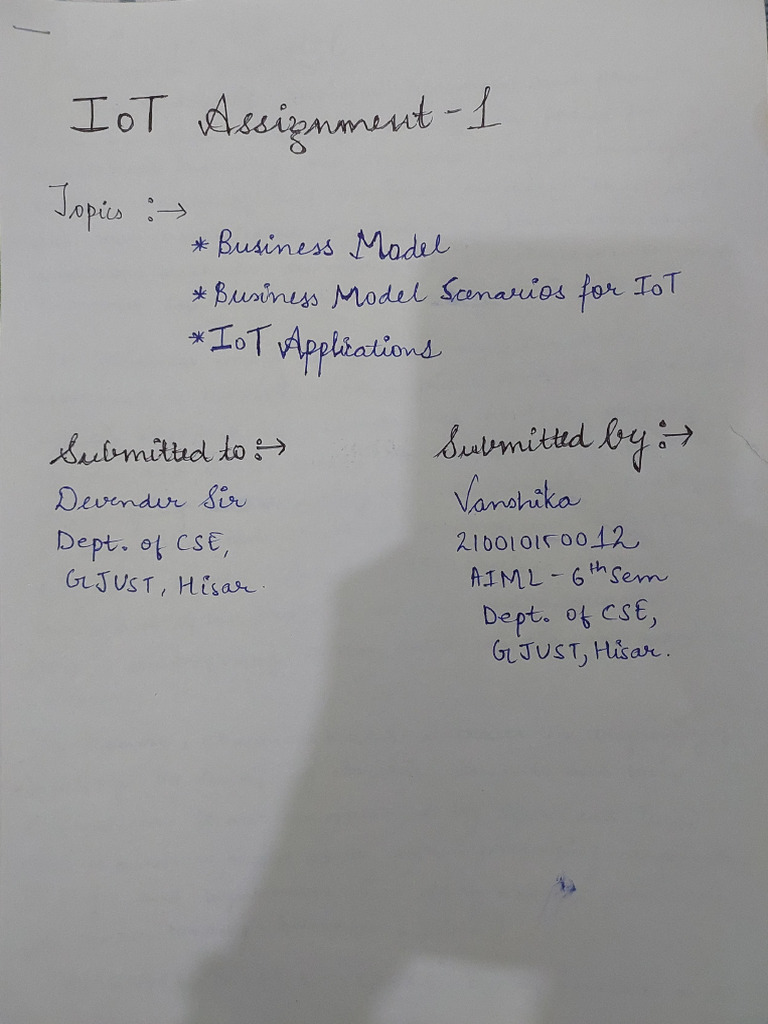 IoT Assignment - 1
Topics :→
* Business Model
* Business Model Scenarios for IoT
* IoT Applications
Submitted to :→
Devender Sir
Dept. of CSE,
GJUST, Hisar.
Submitted by :→
Vanshika
210010150012
AIML - 6th Sem
Dept. of CSE,
GJUST, Hisar.